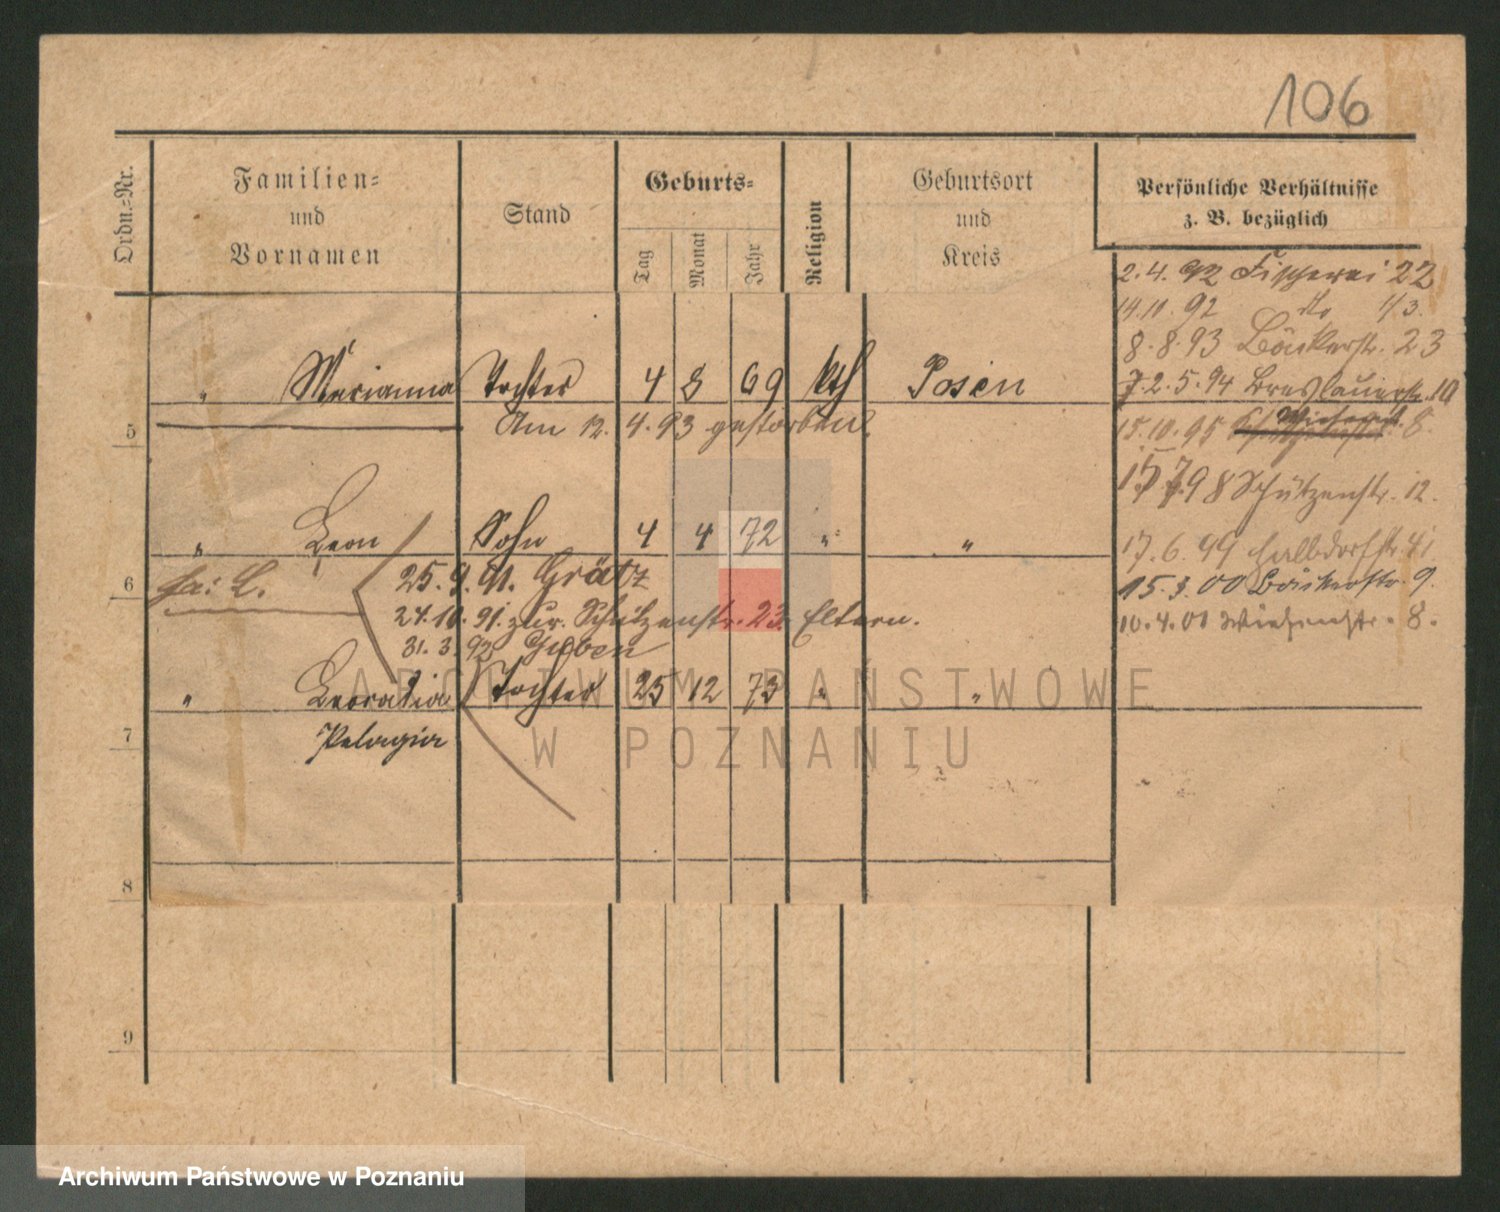 106
Ordn.-Nr.
Familien-
und
Vornamen
Stand
Geburts-
Tag
Monat
Jahr
Religion
Geburtsort
und
Kreis
Persönliche Verhältnisse
z. B. bezüglich
2.4.92 Fischerei 22
14.11.92 do 1/3.
8.8.93 Bäckerstr. 23
2.5.94 Breslauerstr. 10
15.10.95 8.
" Marianna Tochter 4 8 69 kth Posen
Am 12.4.93 gestorben.
5
98 Schützenstr. 12.
" Leon Sohn 4 4 72 " "
17.6.99 Halbdorfstr. 41
6
25.9.91. Grätz
15.3.00 Bäckerstr. 9.
24.10.91. zur. Schützenstr. 23. Eltern.
10.4.01 Wiesenstr. 8.
31.3.92 Guben
" Leocadia Tochter 25 12 73 " "
7
Pelagia
8
9
ARCHIWUM PAŃSTWOWE
W POZNANIU
Archiwum Państwowe w Poznaniu